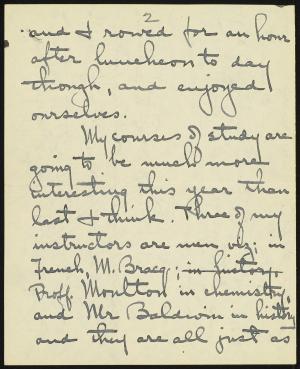 2
and I rowed for an hour
after luncheon to day
though, and enjoyed
ourselves.
My courses of study are
going to be much more
interesting this year than
last I think. Three of my
instructors are men viz; in
French, M. Bracq; in history,
Proff. Moulton in chemistry,
and Mr Baldwin in history
and they are all just as